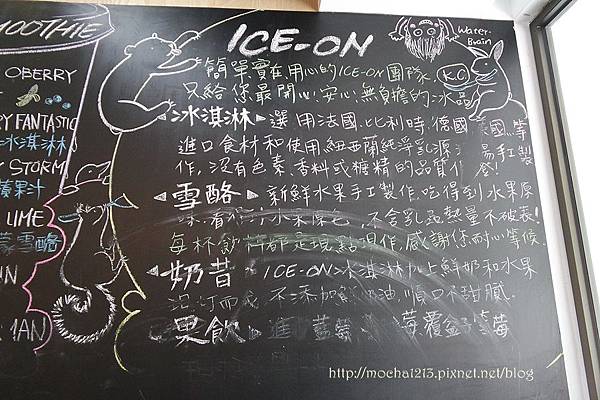 MOOTHIE
OBERRY
Y FANTASTIC
冰淇淋
Y STORM
蘋果汁
LIME
蒙雪酪
IN
IAN
ICE-ON
Water-Brain
K.C.
簡單.實在.用心的ICE-ON團隊
只給您最開心.安心.無負擔的冰品
冰淇淋 選用法國.比利時.德國 等
進口食材和使用紐西蘭純淨乳源 手工製
作,沒有色素.香料或糖精的品質
雪酪 新鮮水果手工製作.吃得到水果原
味.看 水果原色 不含乳品熱量不破表!
每杯飲料都是現點現作,感謝您耐心等候
奶昔 ICE-ON冰淇淋加上鮮奶和水果
而 不添加 油,順口不甜膩.
果飲 藍莓 莓 覆盆 莓
http://mocha1213.pixnet.net/blog